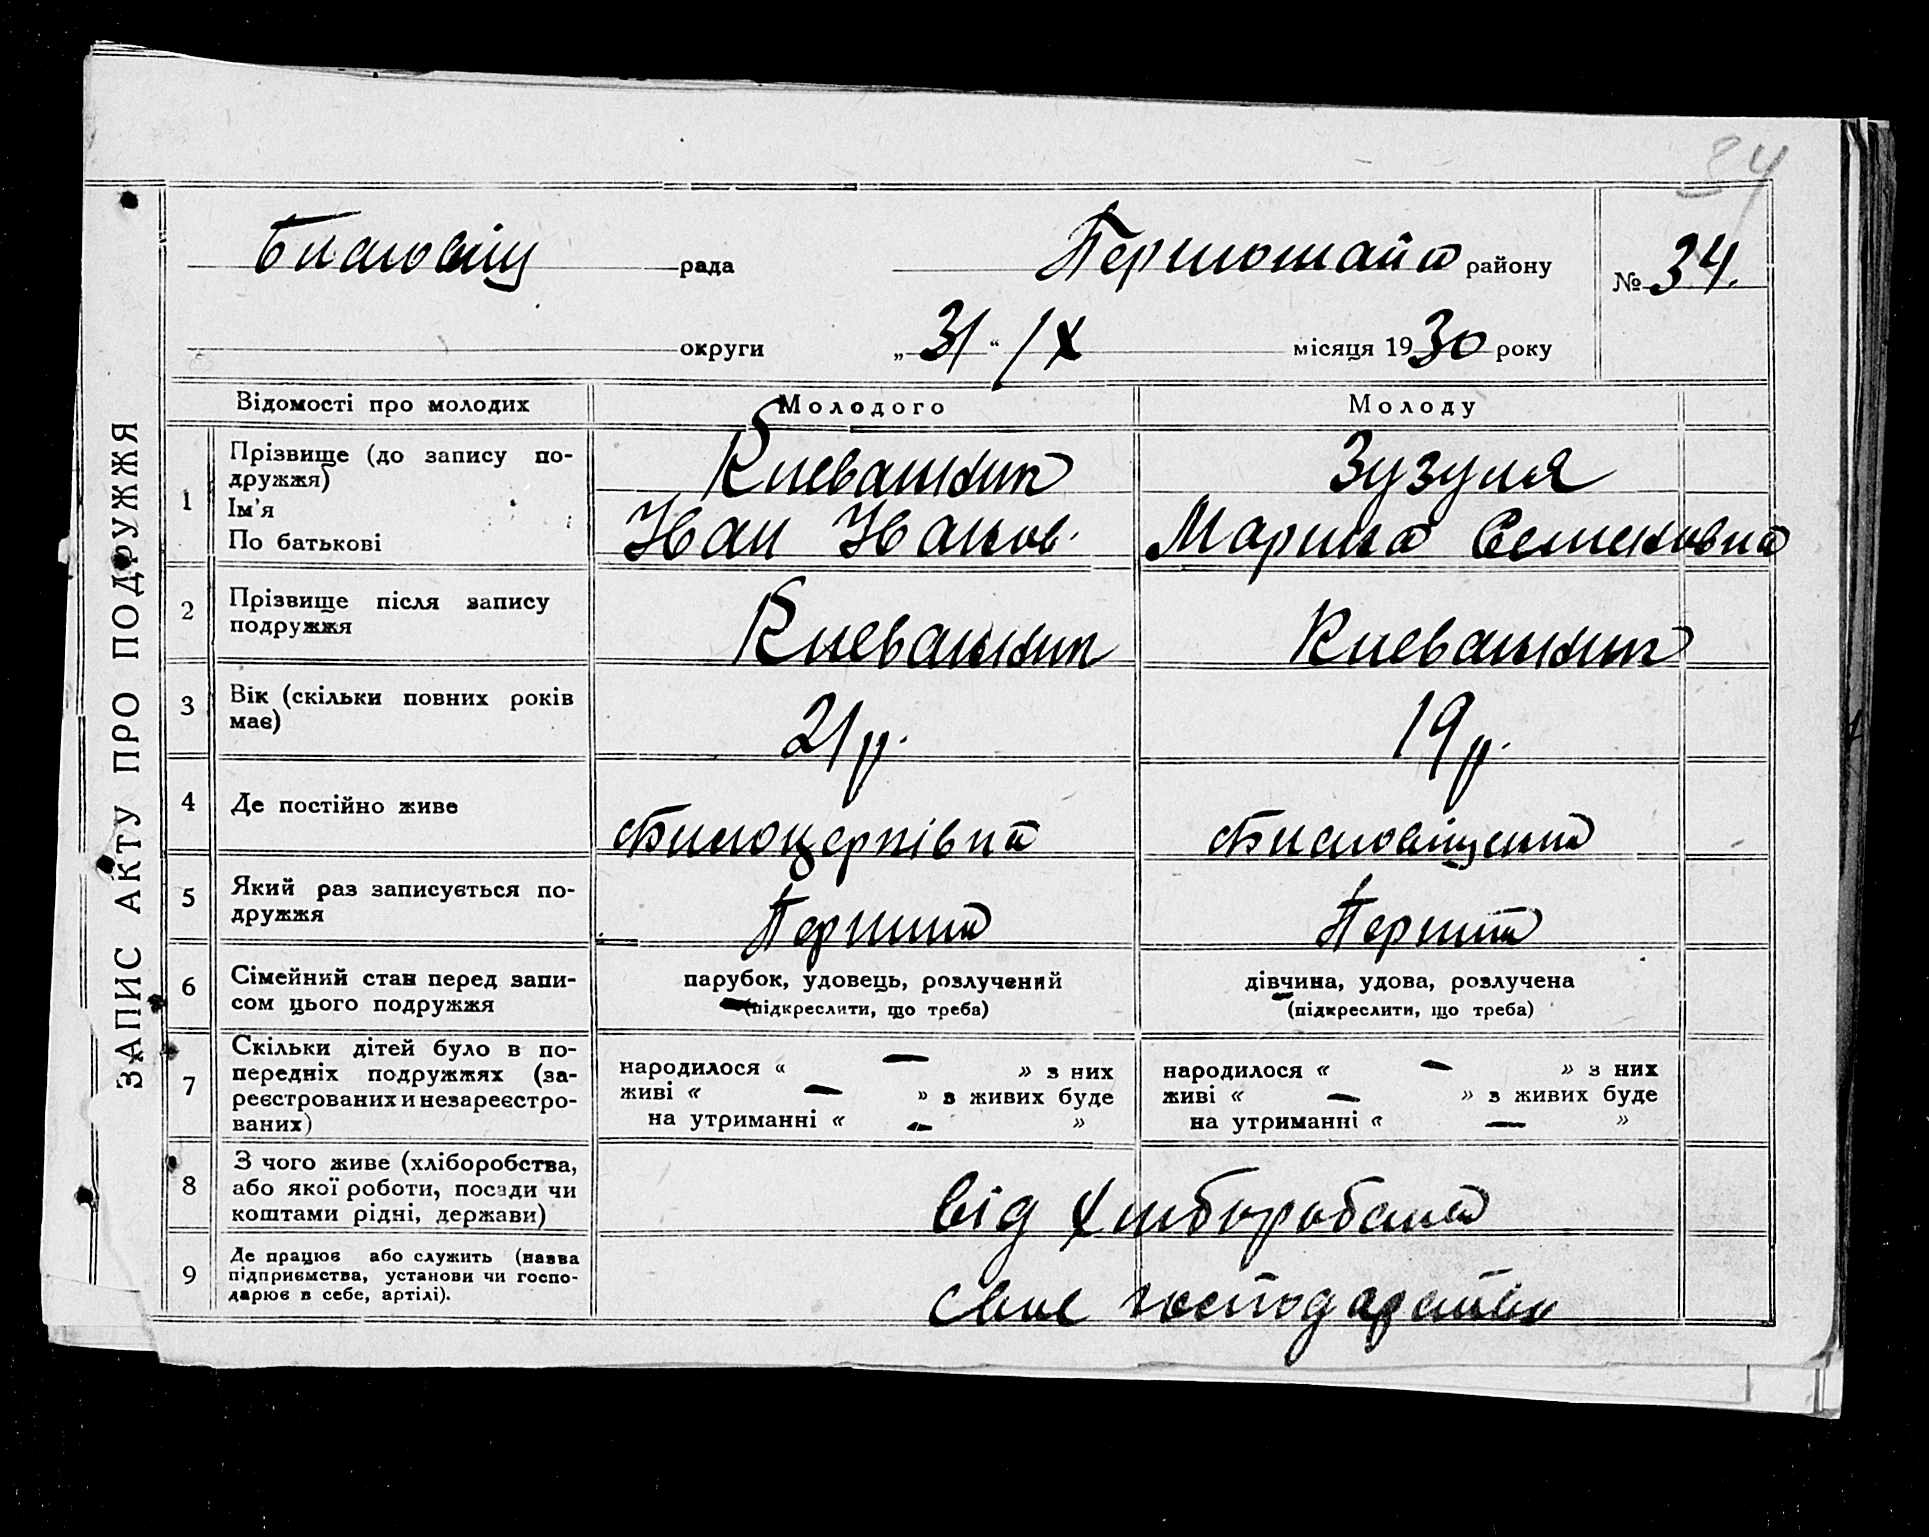 34
Благовіщ рада Першомайск району № 34.
округи „31“ IX місяця 1930 року
ЗАПИС АКТУ ПРО ПОДРУЖЖЯ
Відомості про молодих Молодого Молоду
1 Прізвище (до запису по-
дружжя) Зузуля
Ім'я
По батькові Иван Иванов. Марина Семеновна
2 Прізвище після запису
подружжя
3 Вік (скільки повних років
має) 21 р. 19 р.
4 Де постійно живе
5 Який раз записується по-
дружжя Перший Перший
6 Сімейний стан перед запи-
сом цього подружжя
парубок, удовець, розлучений
(підкреслити, що треба)
дівчина, удова, розлучена
(підкреслити, що треба)
7 Скільки дітей було в по-
передніх подружжях (за-
реєстрованих и незареєстро-
ваних)
народилося « — » з них
живі « — » з живих буде
на утриманні « — »
народилося « — » з них
живі « — » з живих буде
на утриманні « — »
8 З чого живе (хліборобства,
або якої роботи, посади чи
коштами рідні, держави)
від хліборобства
9 Де працює або служить (назва
підприємства, установи чи госпо-
дарює в себе, артілі).
своє господарство